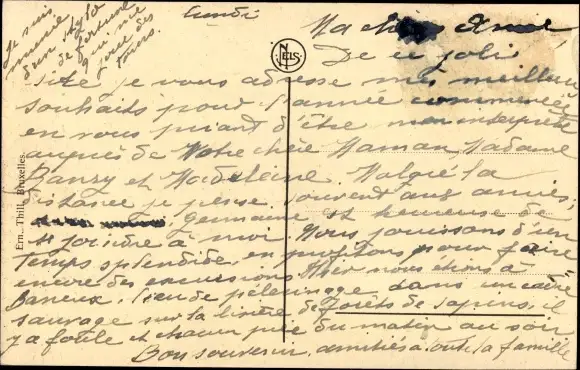 Je suis
munie
d'un stylo
de fortune
qui me
joue des
tours.
Lundi
Ma chère Amie
De ce joli
site je vous adresse mes meilleurs
souhaits pour l'année commencée
en vous priant d'être mon interprète
auprès de Votre chère Maman, Madame
Banzy et Madeleine. Malgré la
distance je pense souvent aux amies.
Germaine est heureuse de
se joindre à moi. Nous jouissons d'un
temps splendide, en profitons pour faire
encore des excursions. Hier nous étions à
Baneux, lieu de pélerinage dans un cadre
sauvage sur la lisière de forêts de sapins; il
y a foule et chacun prie du matin au soir
Bon souvenir, amitiés à toute la famille
NELS
Ern. Thill, Bruxelles